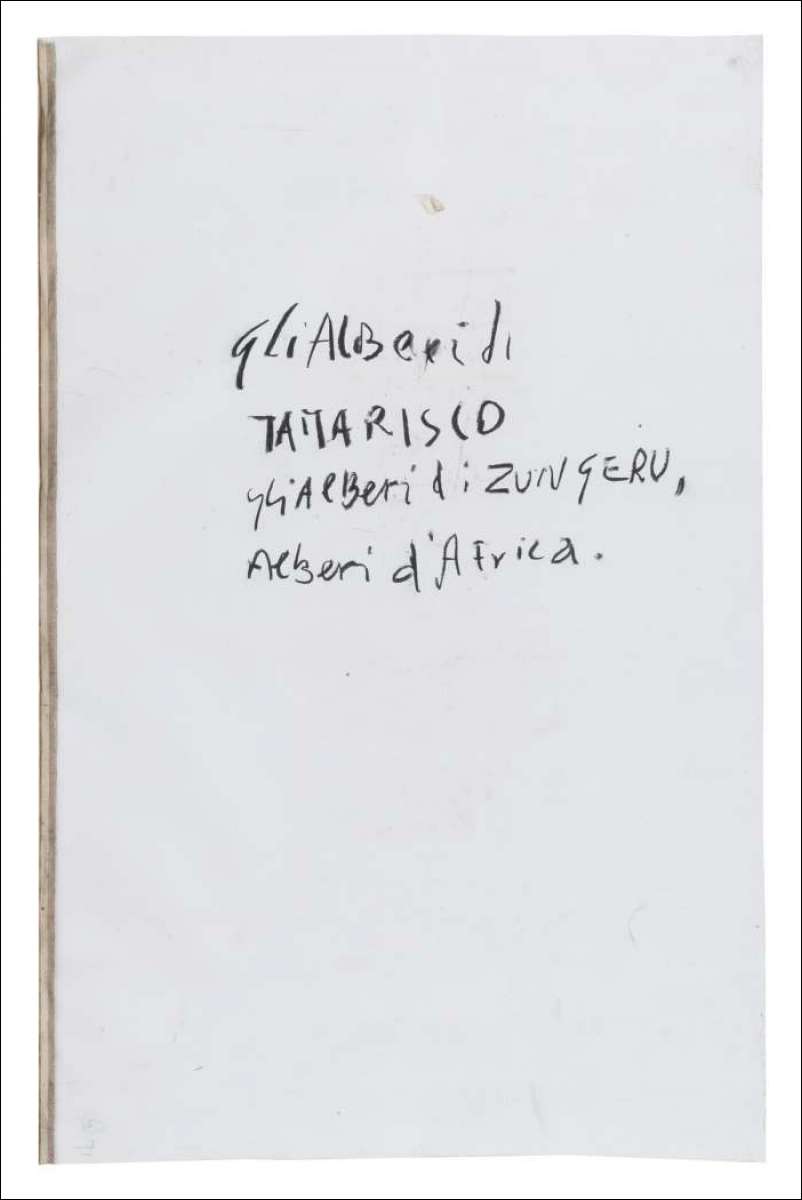 gli AlBeri di
TAMARISCO
gli AlBeri di ZUNGERU,
AlBeri d'AFrica.